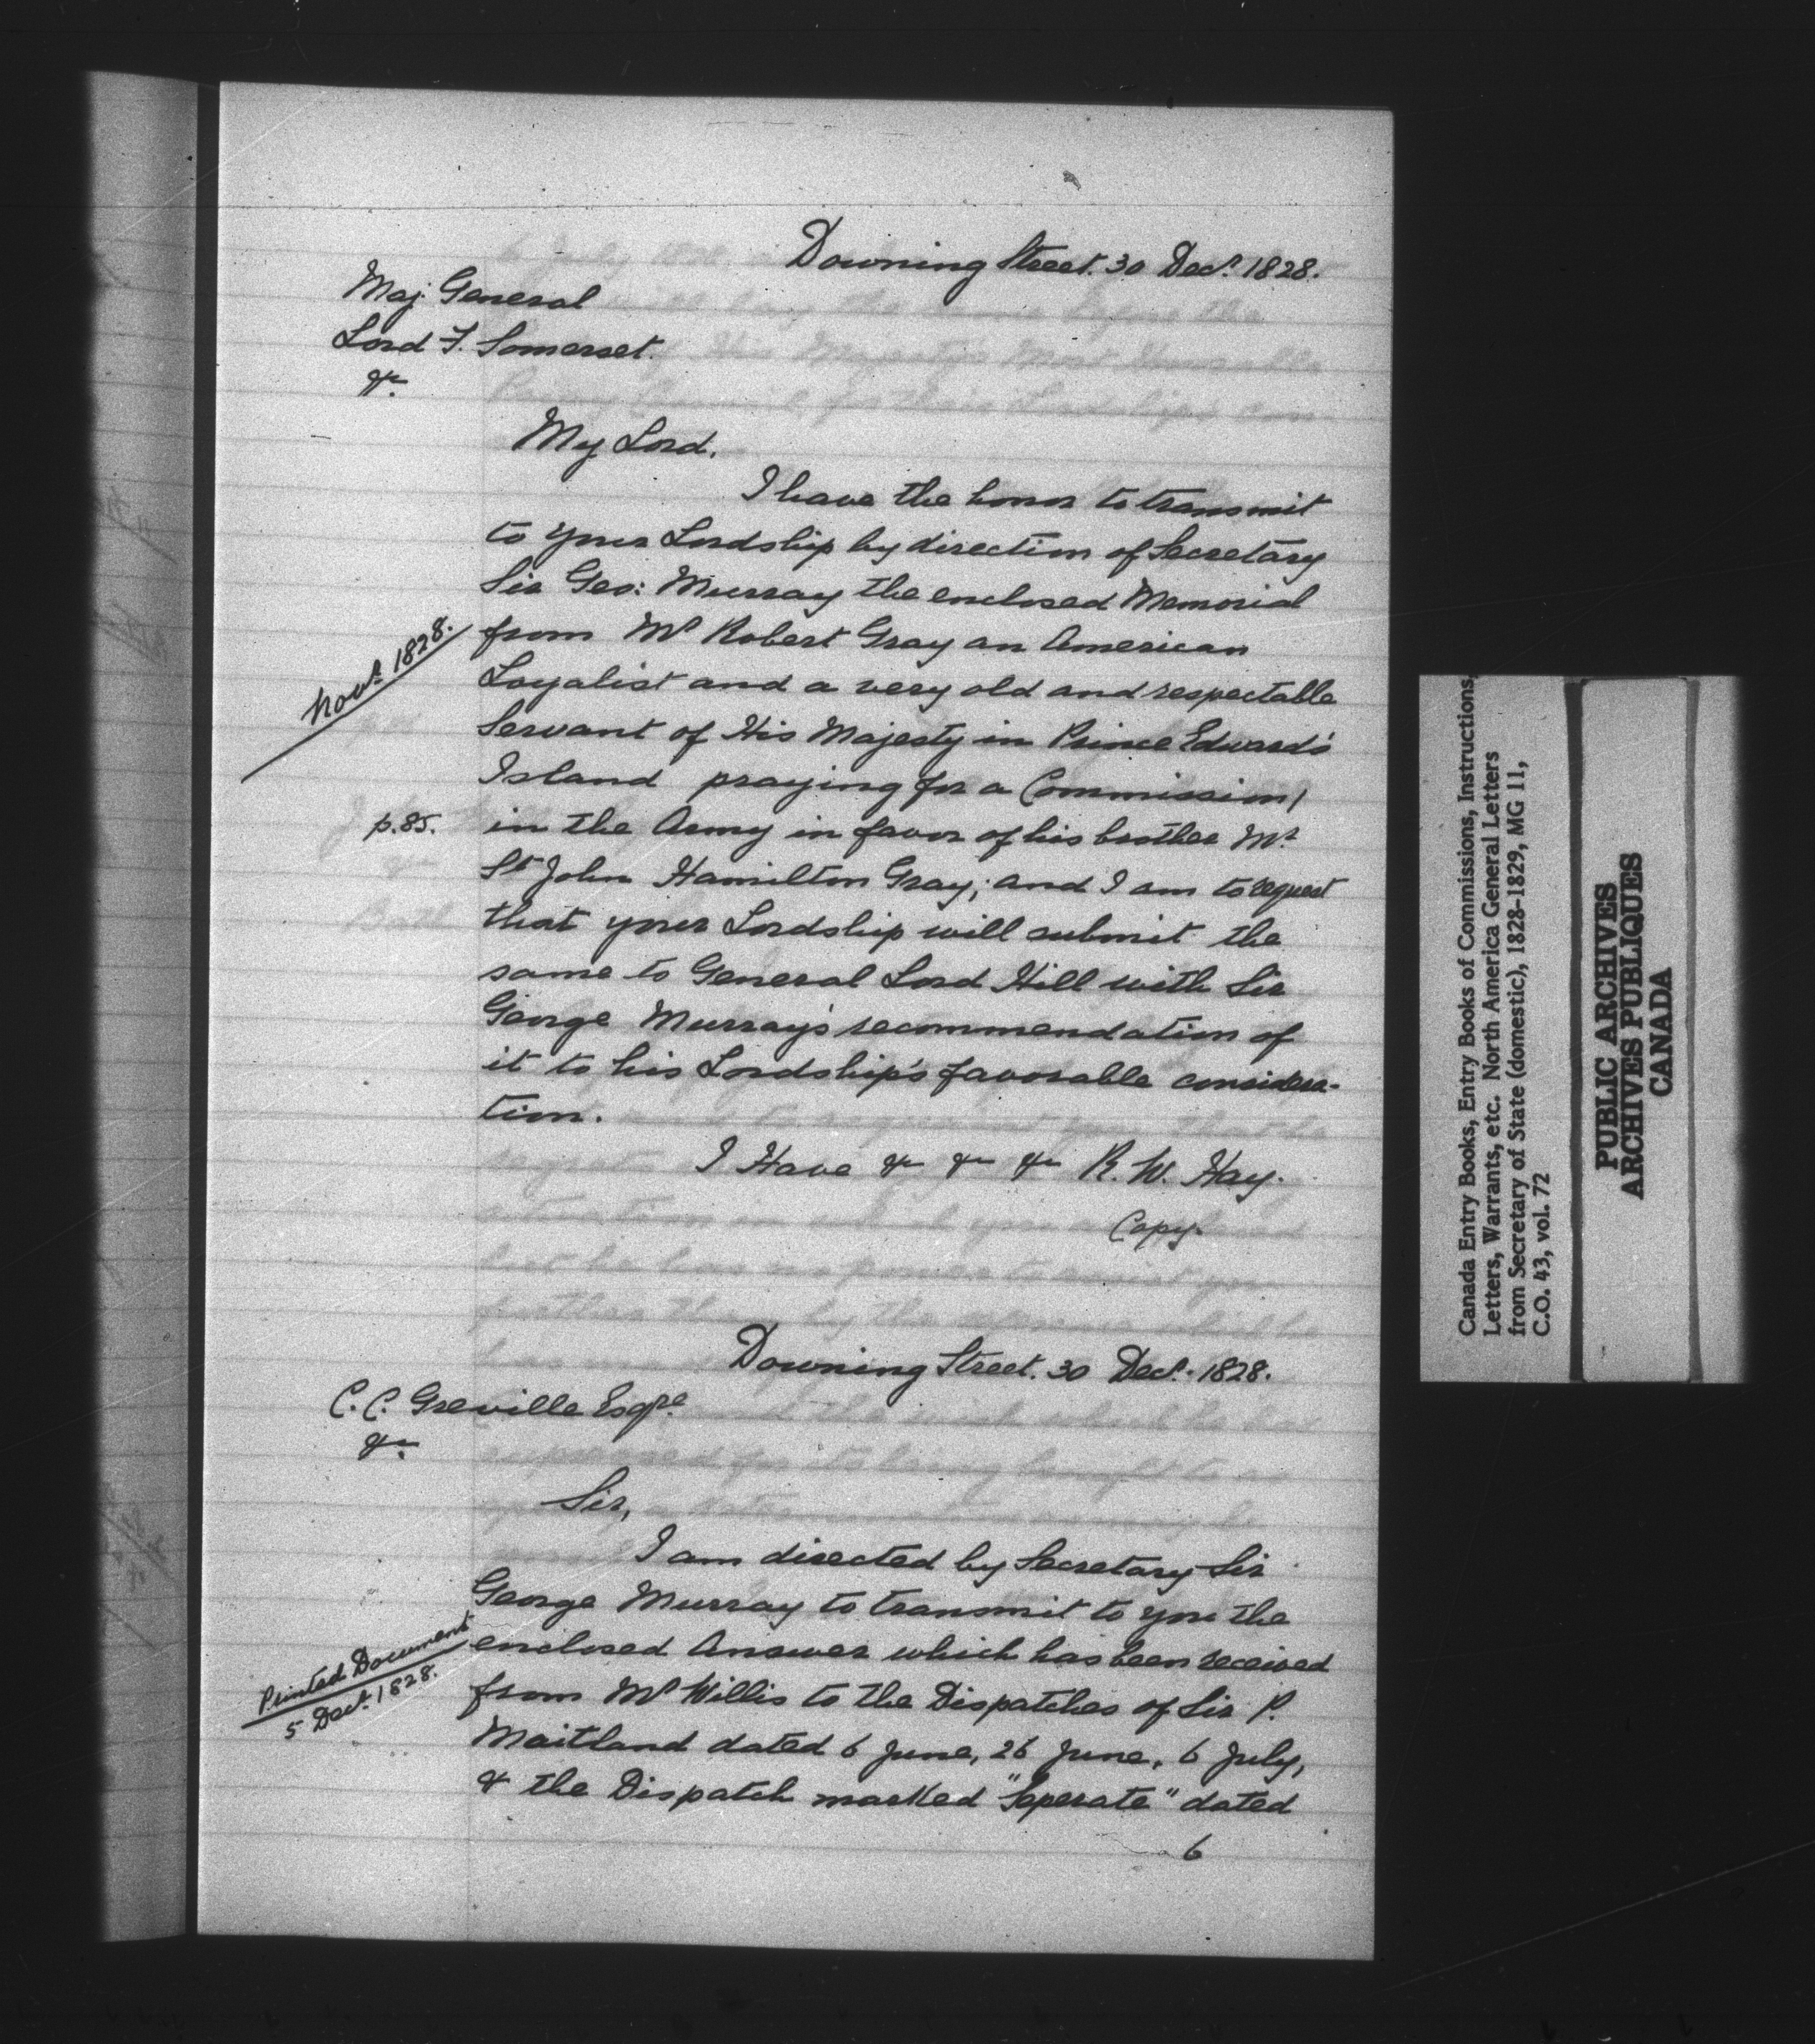 Downing Street. 30 Decr. 1828.
Maj. General
Lord F. Somerset.
&c.
My Lord.
I have the honor to transmit
to your Lordship by direction of Secretary
Sir Geo: Murray the enclosed Memorial
Novr. 1828.
from Mr Robert Gray an American
Loyalist and a very old and respectable
Servant of His Majesty in Prince Edward's
Island praying for a Commission
p.85.
in the Army in favor of his brother Mr
St John Hamilton Gray; and I am to request
that your Lordship will submit the
same to General Lord Hill with Sir
George Murray's recommendation of
it to his Lordship's favorable considera-
tion.
I Have &c &c &c R. W. Hay.
Copy.
Downing Street. 30 Decr. 1828.
C. C. Greville Esqre
&c.
Sir,
I am directed by Secretary Sir
George Murray to transmit to you the
Printed Document
5 Decr. 1828.
enclosed Answer which has been received
from Mr Willis to the Dispatches of Sir P.
Maitland dated 6 June, 26 June, 6 July,
& the Dispatch marked "Seperate" dated
6
Canada Entry Books, Entry Books of Commissions, Instructions,
Letters, Warrants, etc. North America General Letters
from Secretary of State (domestic), 1828-1829, MG 11,
C.O. 43, vol. 72
PUBLIC ARCHIVES
ARCHIVES PUBLIQUES
CANADA